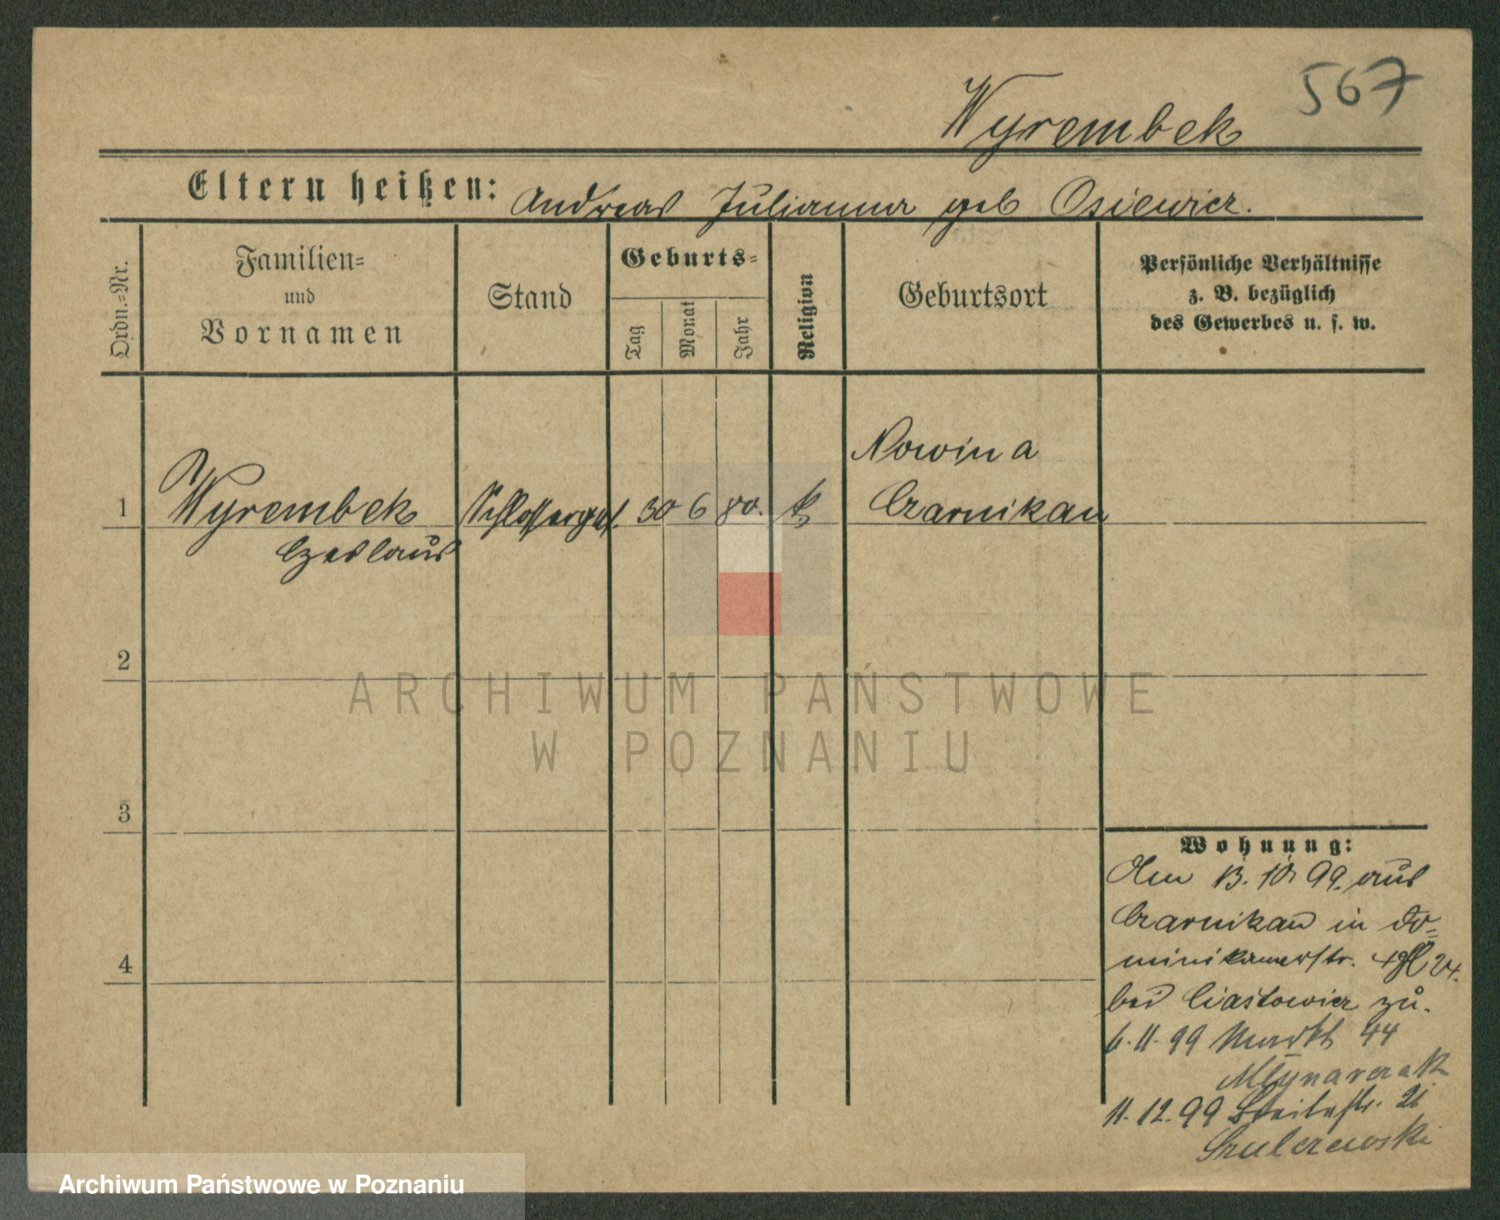 567
Wyrembek
Eltern heißen: Andreas Julianna geb Osiewicz.
Ordn.=Nr.
Familien=
und
Vornamen
Stand
Geburts=
Tag
Monat
Jahr
Religion
Geburtsort
Persönliche Verhältnisse
z. B. bezüglich
des Gewerbes u. s. w.
Nowina
1 Wyrembek Schlosserges. 30 6 80. k Czarnikau
Czeslaus
2
ARCHIWUM PAŃSTWOWE
W POZNANIU
3
4
Wohnung:
Am 13. 10. 99. aus
Czarnikau in Do=
minikanerstr. 24.
bei Ciastowicz zu.
6. 11. 99 Markt 44
Mlynarczak
11. 12. 99 Breitestr. 21
Szulczewski
Archiwum Państwowe w Poznaniu